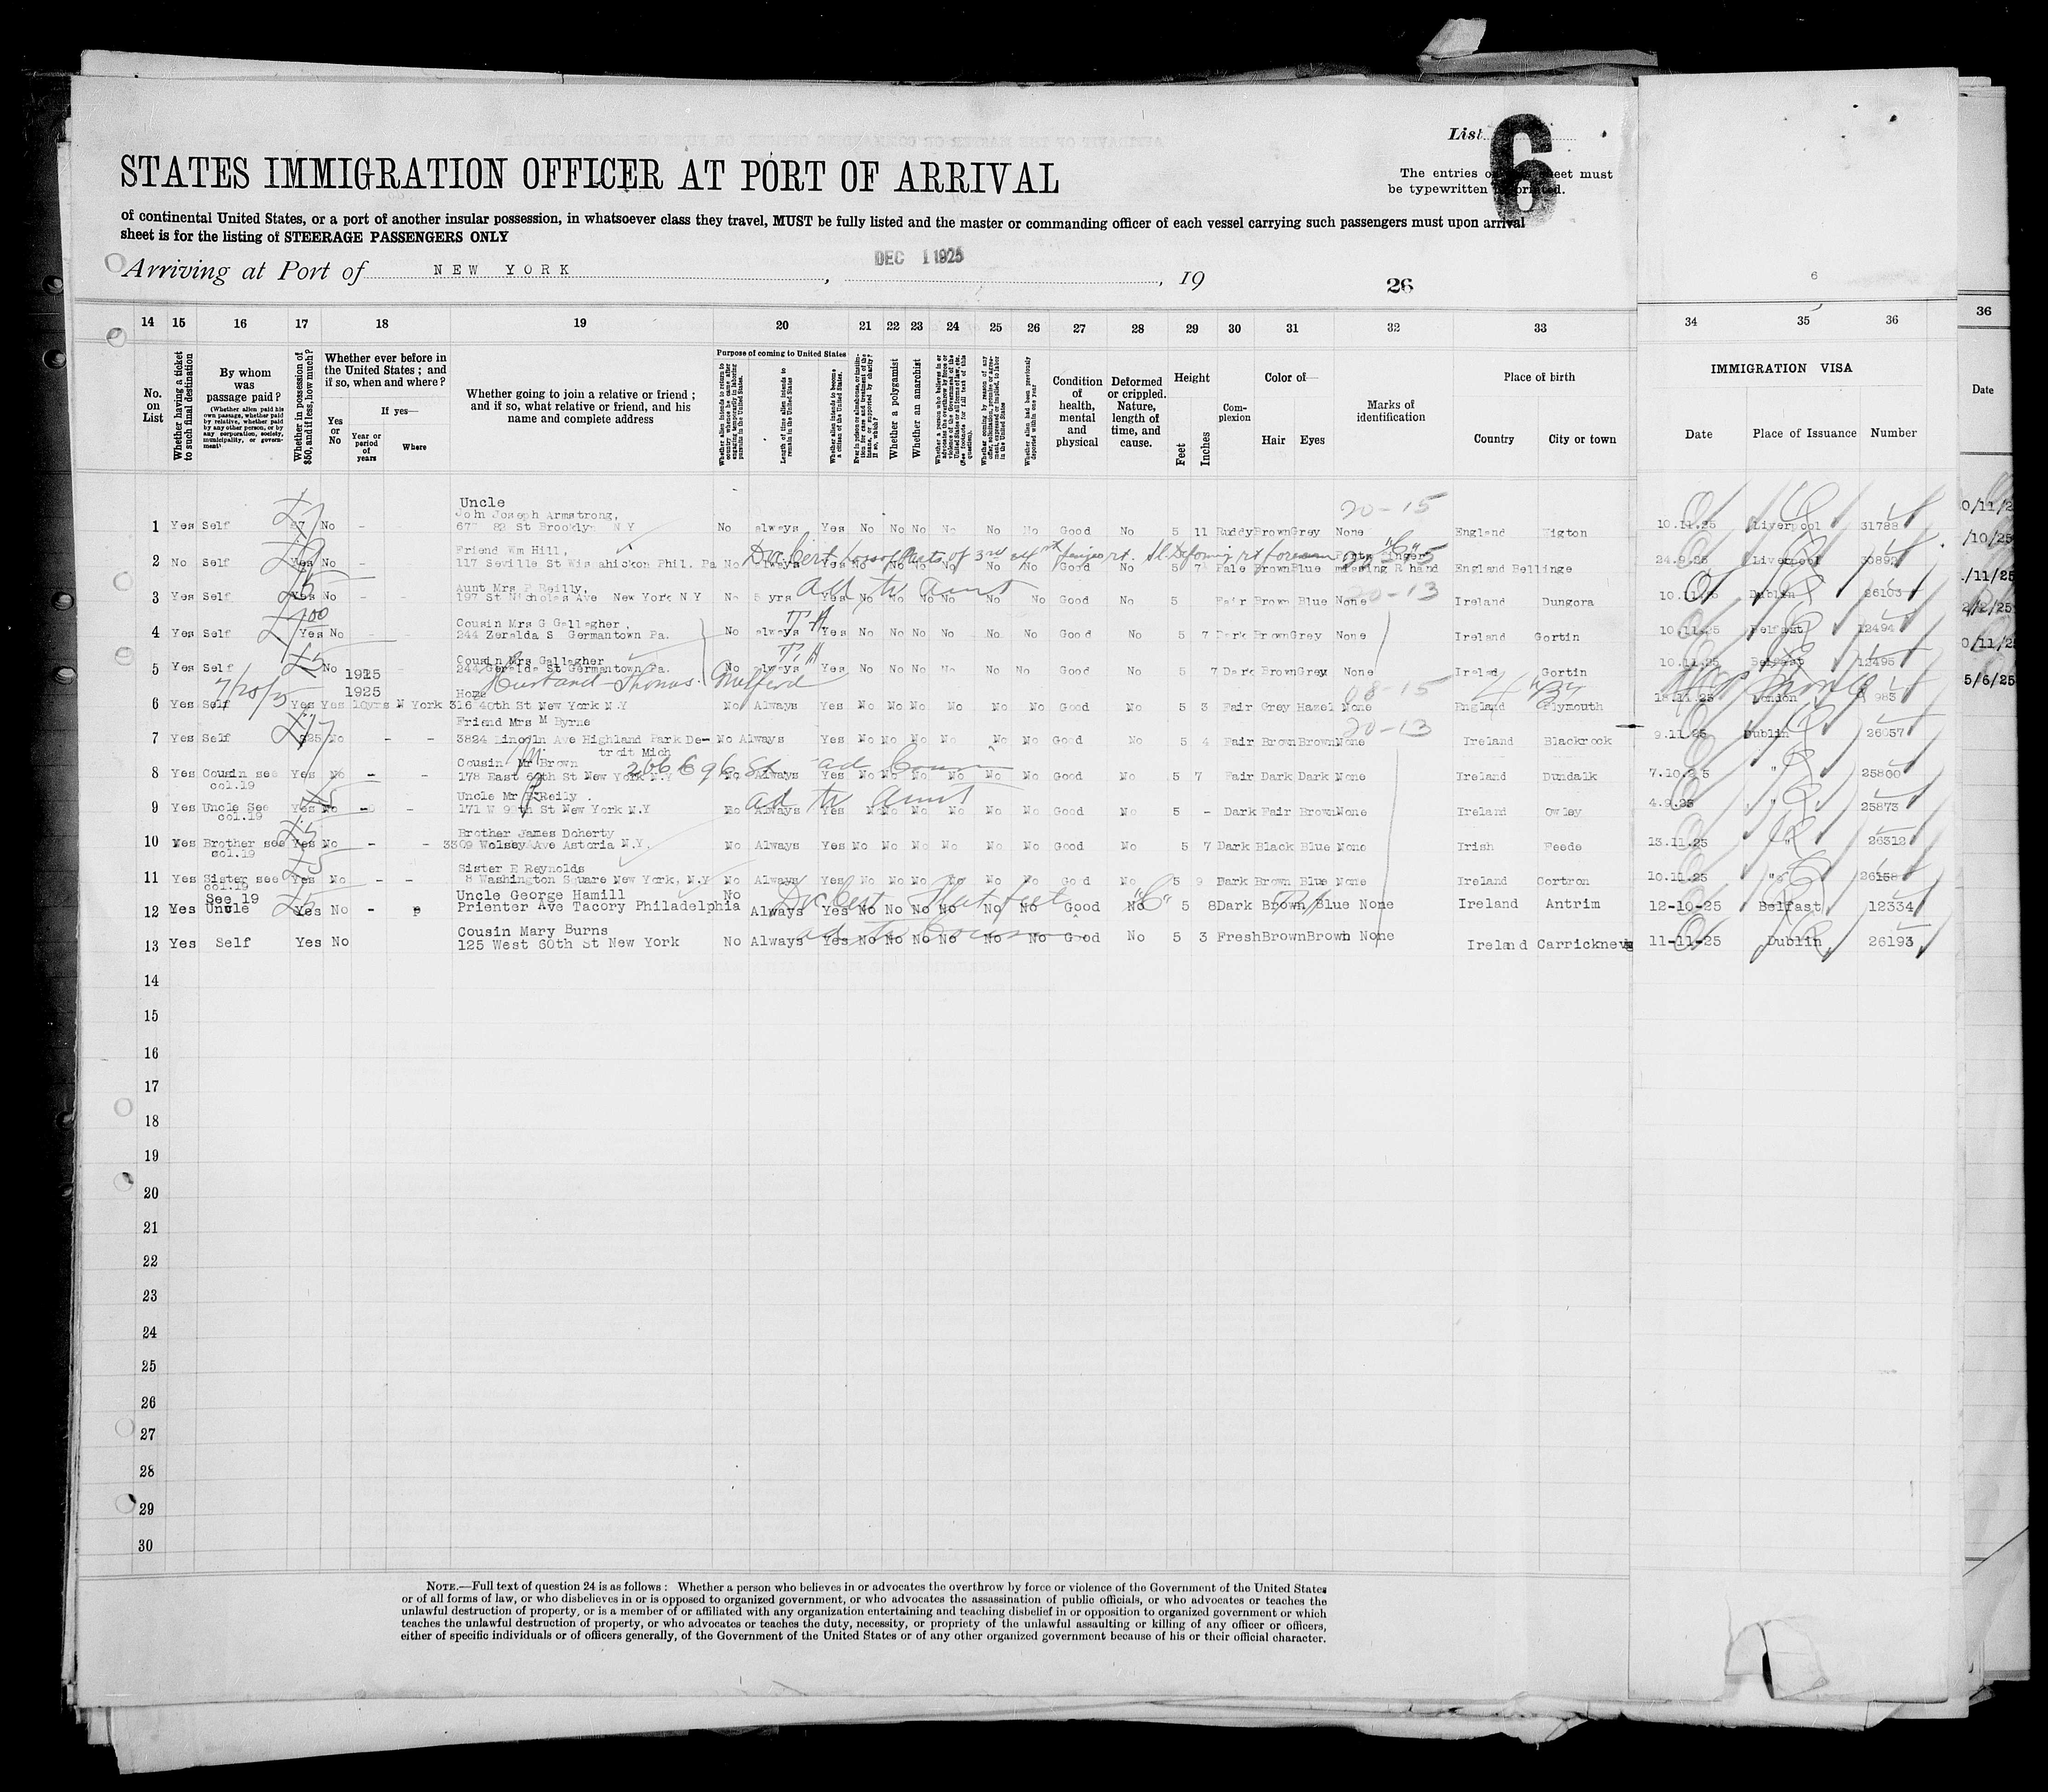 List 6
The entries on this sheet must
be typewritten or printed.
STATES IMMIGRATION OFFICER AT PORT OF ARRIVAL
of continental United States, or a port of another insular possession, in whatsoever class they travel, MUST be fully listed and the master or commanding officer of each vessel carrying such passengers must upon arrival
sheet is for the listing of STEERAGE PASSENGERS ONLY
Arriving at Port of NEW YORK, DEC 1 1925, 19
26
6
14 15 16 17 18 19 20 21 22 23 24 25 26 27 28 29 30 31 32 33 34 35 36 36
No. on List
Whether having a ticket to such final destination
By whom was passage paid?
(Whether alien paid his own passage, whether paid by relative, whether paid by any other person, or by any corporation, society, municipality, or government)
Whether in possession of $50, and if less, how much?
Whether ever before in the United States; and if so, when and where?
Yes or No
If yes—
Year or period of years
Where
Whether going to join a relative or friend; and if so, what relative or friend, and his name and complete address
Purpose of coming to United States
Whether alien intends to return to country whence he came after engaging temporarily in laboring pursuits in the United States.
Length of time alien intends to remain in the United States
Whether alien intends to become a citizen of the United States.
Ever in prison or almshouse, or institution for care and treatment of the insane, or supported by charity? If so, which?
Whether a polygamist
Whether an anarchist
Whether coming by reason of any offer, solicitation, promise or agreement, expressed or implied, to labor in the United States
Whether alien had been previously deported within one year
Condition of health, mental and physical
Deformed or crippled. Nature, length of time, and cause.
Height
Feet Inches
Complexion
Color of—
Hair Eyes
Marks of identification
Place of birth
Country City or town
IMMIGRATION VISA
Date Place of Issuance Number
Date
Uncle 20-15
John Joseph Armstrong,
1 Yes Self No - - 82 St Brooklyn N Y No always Yes No No No No No No Good No 5 11 Ruddy Brown Grey None England Wigton 10.11.25 Liverpool 31788
Friend Wm Hill,
2 No Self Yes No - 117 Seville St Wissahickon Phil. Pa No Always Yes No No No No No No Good No 5 7 Pale Brown Blue missing R hand England Bellinge 24.9.25 Liverpool 30892
Aunt Mrs P Reilly, ad to aunt 20-13
3 Yes Self Yes No - 197 St Nicholas Ave New York N Y No 5 yrs Yes No No No No No No Good No 5 Fair Brown Blue None Ireland Dungora 10.11.25 Dublin 26103
Cousin Mrs G Gallagher, T.H
4 Yes Self Yes No - 244 Zeralda S Germantown Pa. No always Yes No No No No No No Good No 5 7 Dark Brown Grey None Ireland Gortin 10.11.25 Belfast 12494
Cousin Mrs Gallagher T.H
5 Yes Self No 244 Geralda St Germantown Pa. No always Yes No No No No No No Good No 5 7 Dark Brown Grey None Ireland Gortin 10.11.25 Belfast 12495
7/20/25 1925 Home Husband Thomas 08-15
6 Yes Self Yes Yes 10yrs N York 316 40th St New York N.Y No Always Yes No No No No No No Good No 5 3 Fair Grey Hazel None England Plymouth London 983
Friend Mrs M Byrne 20-13
7 Yes Self $25 No - - 3824 Lincoln Ave Highland Park De-
troit Mich No Always Yes No No No No No No Good No 5 4 Fair Brown Brown None Ireland Blackrock 9.11.25 Dublin 26057
Cousin Mr Brown 266 E 96 St
8 Yes Cousin see
col.19 Yes No - - 178 East 69th St New York N.Y No Always Yes No No No No No No Good No 5 7 Fair Dark Dark None Ireland Dundalk 7.10.25 " 25800
Uncle Mr P Reily ad to aunt
9 Yes Uncle See
col.19 Yes No - - 171 W 99th St New York N.Y No Always Yes No No No No No No Good No 5 - Dark Fair Brown None Ireland Owley 4.9.25 " 25873
Brother James Doherty
10 Yes Brother see
col.19 Yes No - - 3309 Wolsey Ave Astoria N.Y. No Always Yes No No No No No No Good No 5 7 Dark Black Blue None Irish Feede 13.11.25 " 26312
Sister E Reynolds
11 Yes Sister see
col.19 Yes No - - 8 Washington Square New York, N.Y No Always Yes No No No No No No Good No 5 9 Dark Brown Blue None Ireland Cortron 10.11.25 " 26158
See 19 Uncle George Hamill No
12 Yes Uncle Yes No - Prienter Ave Tacory Philadelphia Always Yes No No No No No No Good No 5 8 Dark Brown Blue None Ireland Antrim 12-10-25 Belfast 12334
Cousin Mary Burns
13 Yes Self Yes No 125 West 60th St New York No Always Yes No No No No No No Good No 5 3 Fresh Brown Brown None Ireland 11-11-25 Dublin 26193
14
15
16
17
18
19
20
21
22
23
24
25
26
27
28
29
30
NOTE.—Full text of question 24 is as follows: Whether a person who believes in or advocates the overthrow by force or violence of the Government of the United States
or of all forms of law, or who disbelieves in or is opposed to organized government, or who advocates the assassination of public officials, or who advocates or teaches the
unlawful destruction of property, or is a member of or affiliated with any organization entertaining and teaching disbelief in or opposition to organized government or which
teaches the unlawful destruction of property, or who advocates or teaches the duty, necessity, or propriety of the unlawful assaulting or killing of any officer or officers,
either of specific individuals or of officers generally, of the Government of the United States or of any other organized government because of his or their official character.